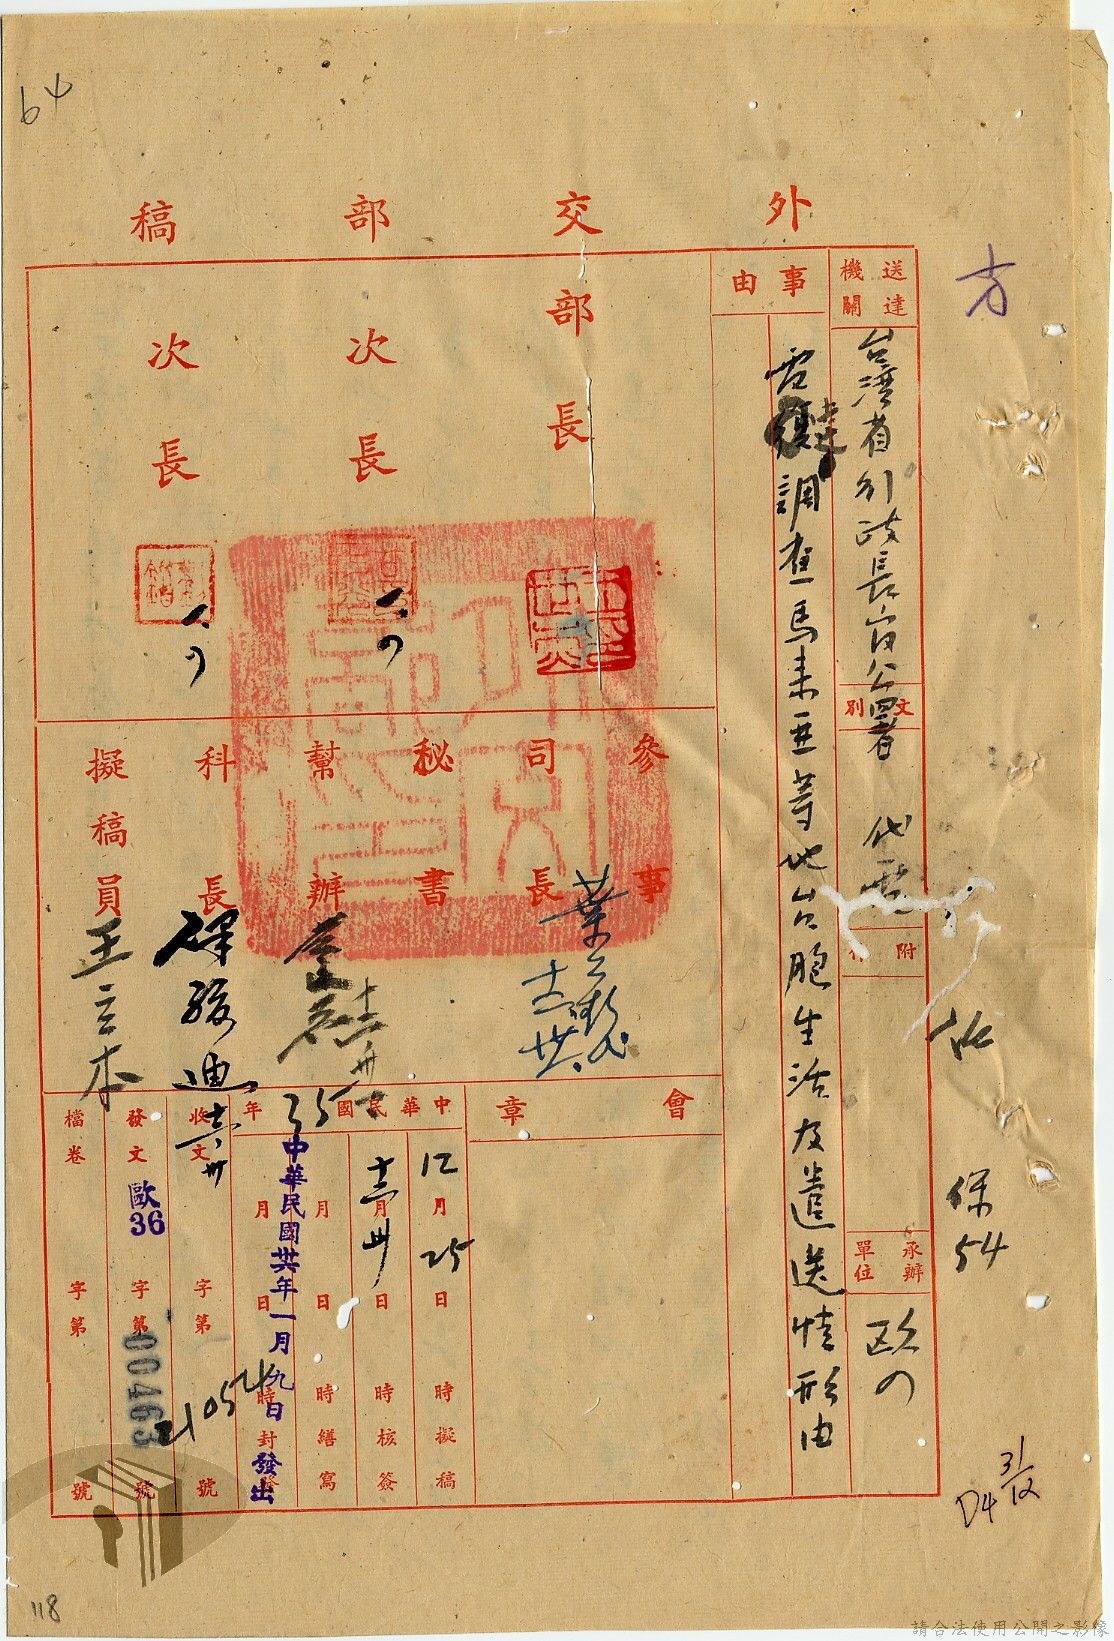 64
外交部稿
方
送達機關
台灣省行政長官公署
文別
代電
附
承辦單位
歐
事由
電 達 調查馬來亞等地台胞生活及遣送情形由
保
54
31/12
D4
部長
次長
次長
參事
司長
葉公超
秘書
幫辦
科長
擬稿員
王立本
會章
中華民國 35 年
12 月 25 日 時擬稿
月 卅 日 時核簽
月 日 時繕寫
月 日 時封發
中華民國卅六年一月九日 發出
收文 字第 21054 號
發文 歐36 字第 00463 號
檔卷 字第 號
118
請合法使用公開之影像